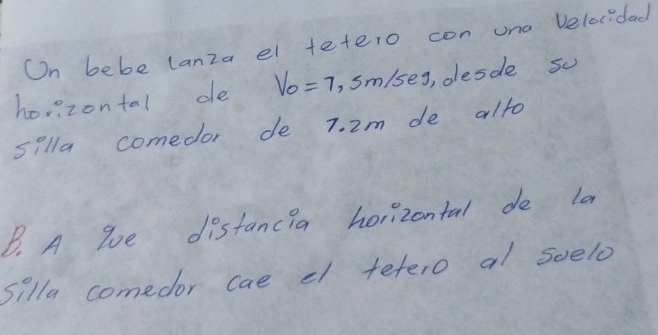 Un bebe lanza el tetero con una velocidad
horizontal de Vo = 1,5m/seg, desde su
silla comedor de 1.2m de alto
B. A que distancia horizontal de la
silla comedor cae el tetero al suelo